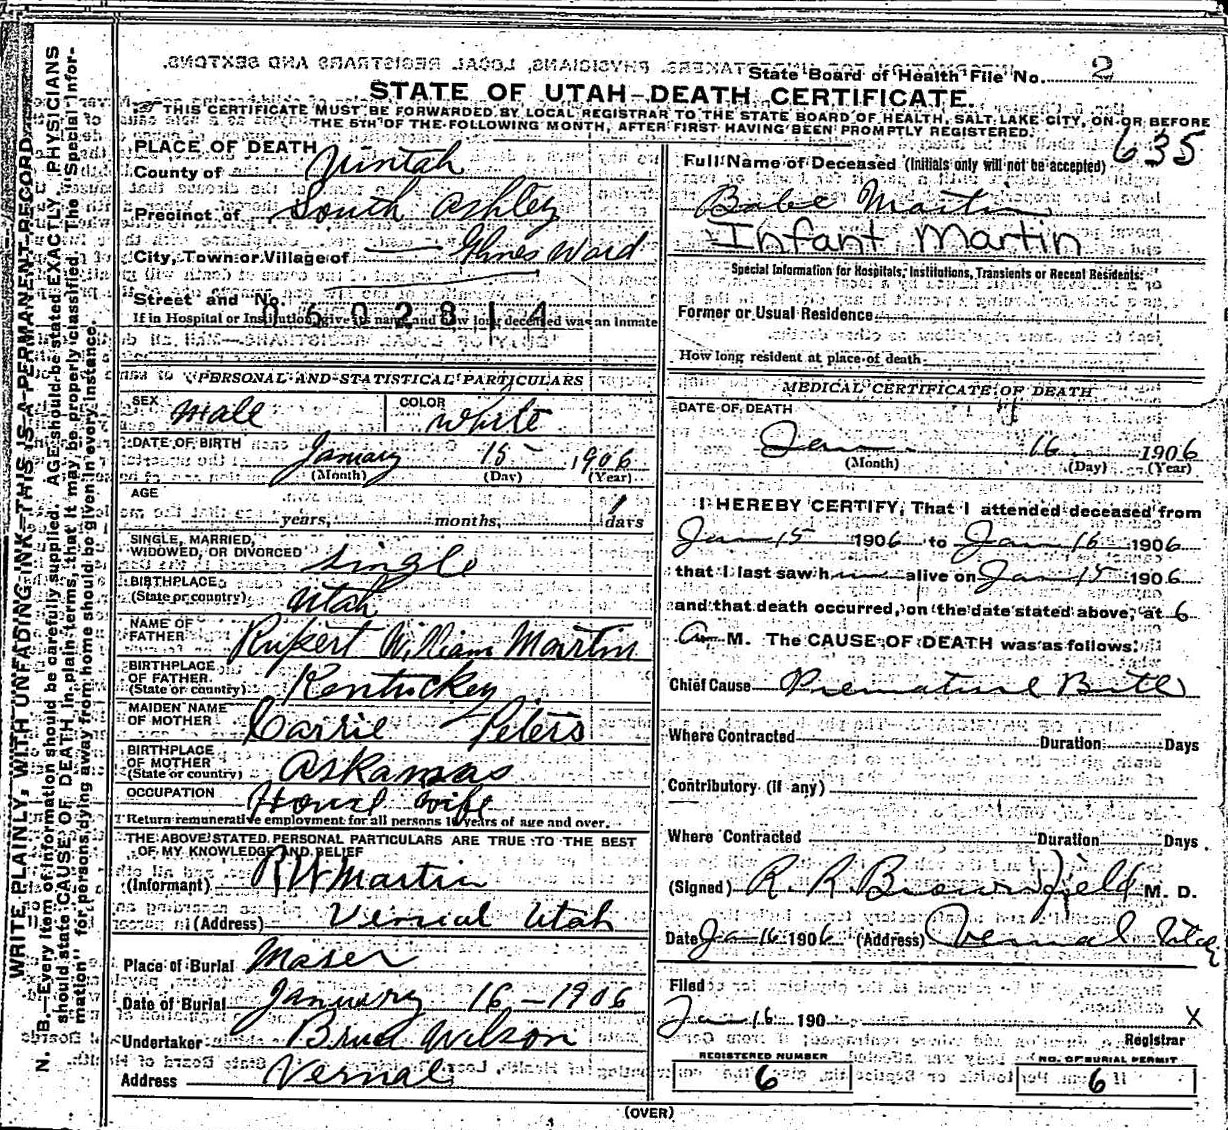 State Board of Health File No. 2
STATE OF UTAH—DEATH CERTIFICATE.
THIS CERTIFICATE MUST BE FORWARDED BY LOCAL REGISTRAR TO THE STATE BOARD OF HEALTH, SALT LAKE CITY, ON OR BEFORE
THE 5TH OF THE FOLLOWING MONTH, AFTER FIRST HAVING BEEN PROMPTLY REGISTERED.
635
WRITE PLAINLY, WITH UNFADING INK—THIS IS A PERMANENT RECORD.
N. B.—Every item of information should be carefully supplied. AGE should be stated EXACTLY. PHYSICIANS
should state CAUSE OF DEATH in plain terms, that it may be properly classified. The "Special Infor-
mation" for persons dying away from home should be given in every instance.
PLACE OF DEATH
County of Uintah
Precinct of South Ashley
City, Town or Village of — Glines Ward
Street and No.
0602814
If in Hospital or Institution, give its name and how long deceased was an inmate
PERSONAL AND STATISTICAL PARTICULARS
SEX Male
COLOR White
DATE OF BIRTH January 15 1906
(Month) (Day) (Year)
AGE
years, months, 1 days
SINGLE, MARRIED,
WIDOWED, OR DIVORCED Single
BIRTHPLACE
(State or country) Utah
NAME OF
FATHER Rupert William Martin
BIRTHPLACE
OF FATHER
(State or country) Kentuckey
MAIDEN NAME
OF MOTHER Carrie Peters
BIRTHPLACE
OF MOTHER
(State or country) Arkansas
OCCUPATION House wife
Return remunerative employment for all persons 10 years of age and over.
THE ABOVE STATED PERSONAL PARTICULARS ARE TRUE TO THE BEST
OF MY KNOWLEDGE AND BELIEF
(Informant) R W Martin
(Address) Vernal Utah
Place of Burial Maser
Date of Burial January 16—1906
Undertaker Wilson
Address Vernal
Full Name of Deceased (Initials only will not be accepted)
Babe Martin
Infant Martin
Special Information for Hospitals, Institutions, Transients or Recent Residents:
Former or Usual Residence
How long resident at place of death
MEDICAL CERTIFICATE OF DEATH
DATE OF DEATH
Jan 16 1906
(Month) (Day) (Year)
I HEREBY CERTIFY, That I attended deceased from
Jan 15 1906 to Jan 16 1906
that I last saw h im alive on Jan 15 1906
and that death occurred, on the date stated above, at 6
a M. The CAUSE OF DEATH was as follows:
Chief Cause Premature Birth
Where Contracted Duration Days
Contributory (if any)
Where Contracted Duration Days.
(Signed) R. R. Brownfield M. D.
Date Jan 16 1906 (Address) Vernal Utah
Filed
Jan 16 190 X
Registrar
REGISTERED NUMBER
6
NO. OF BURIAL PERMIT
6
(OVER)